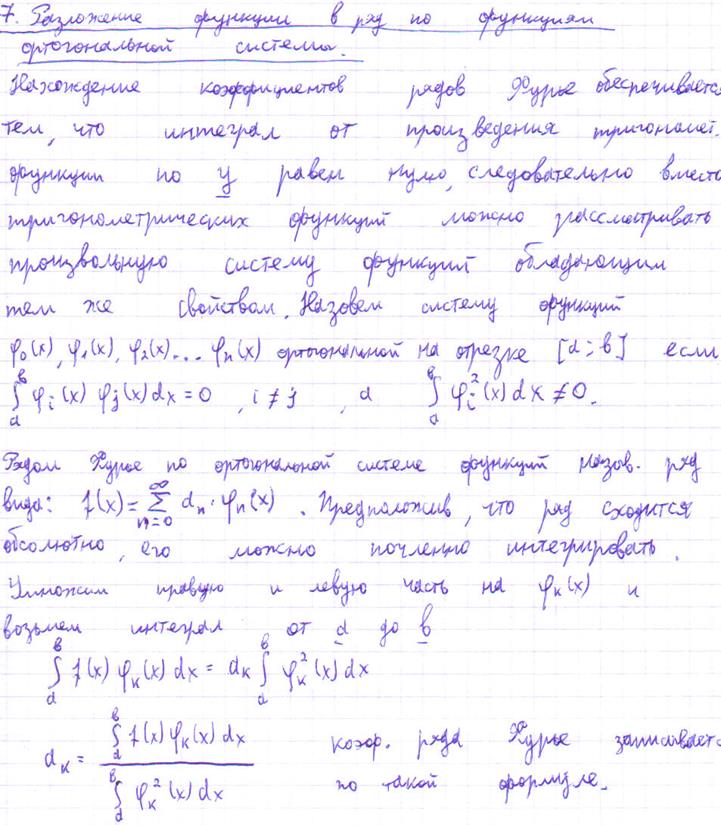 7. Разложение функции в ряд по функциям
ортогональной системы.
Нахождение коэффициентов рядов Фурье обеспечивается
тем, что интеграл от произведения тригономет.
функции по y равен нулю, следовательно вместо
тригонометрических функций можно рассматривать
произвольную систему функций обладающим
тем же свойством. Назовем систему функций
φ₀(x), φ₁(x), φ₂(x)... φₙ(x) ортогональной на отрезке [a; b] если
∫ₐᵇ φᵢ(x) φⱼ(x) dx = 0, i ≠ j, а ∫ₐᵇ φᵢ²(x) dx ≠ 0.
Рядом Фурье по ортогональной системе функций назов. ряд
вида: f(x) = ∑ₙ₌₀^∞ aₙ · φₙ(x). Предположив, что ряд сходится
абсолютно, его можно почленно интегрировать.
Умножим правую и левую часть на φₖ(x) и
возьмем интеграл от a до b
∫ₐᵇ f(x) φₖ(x) dx = aₖ ∫ₐᵇ φₖ²(x) dx
aₖ = ∫ₐᵇ f(x) φₖ(x) dx / ∫ₐᵇ φₖ²(x) dx коэф. ряда Фурье записывается
по такой формуле.